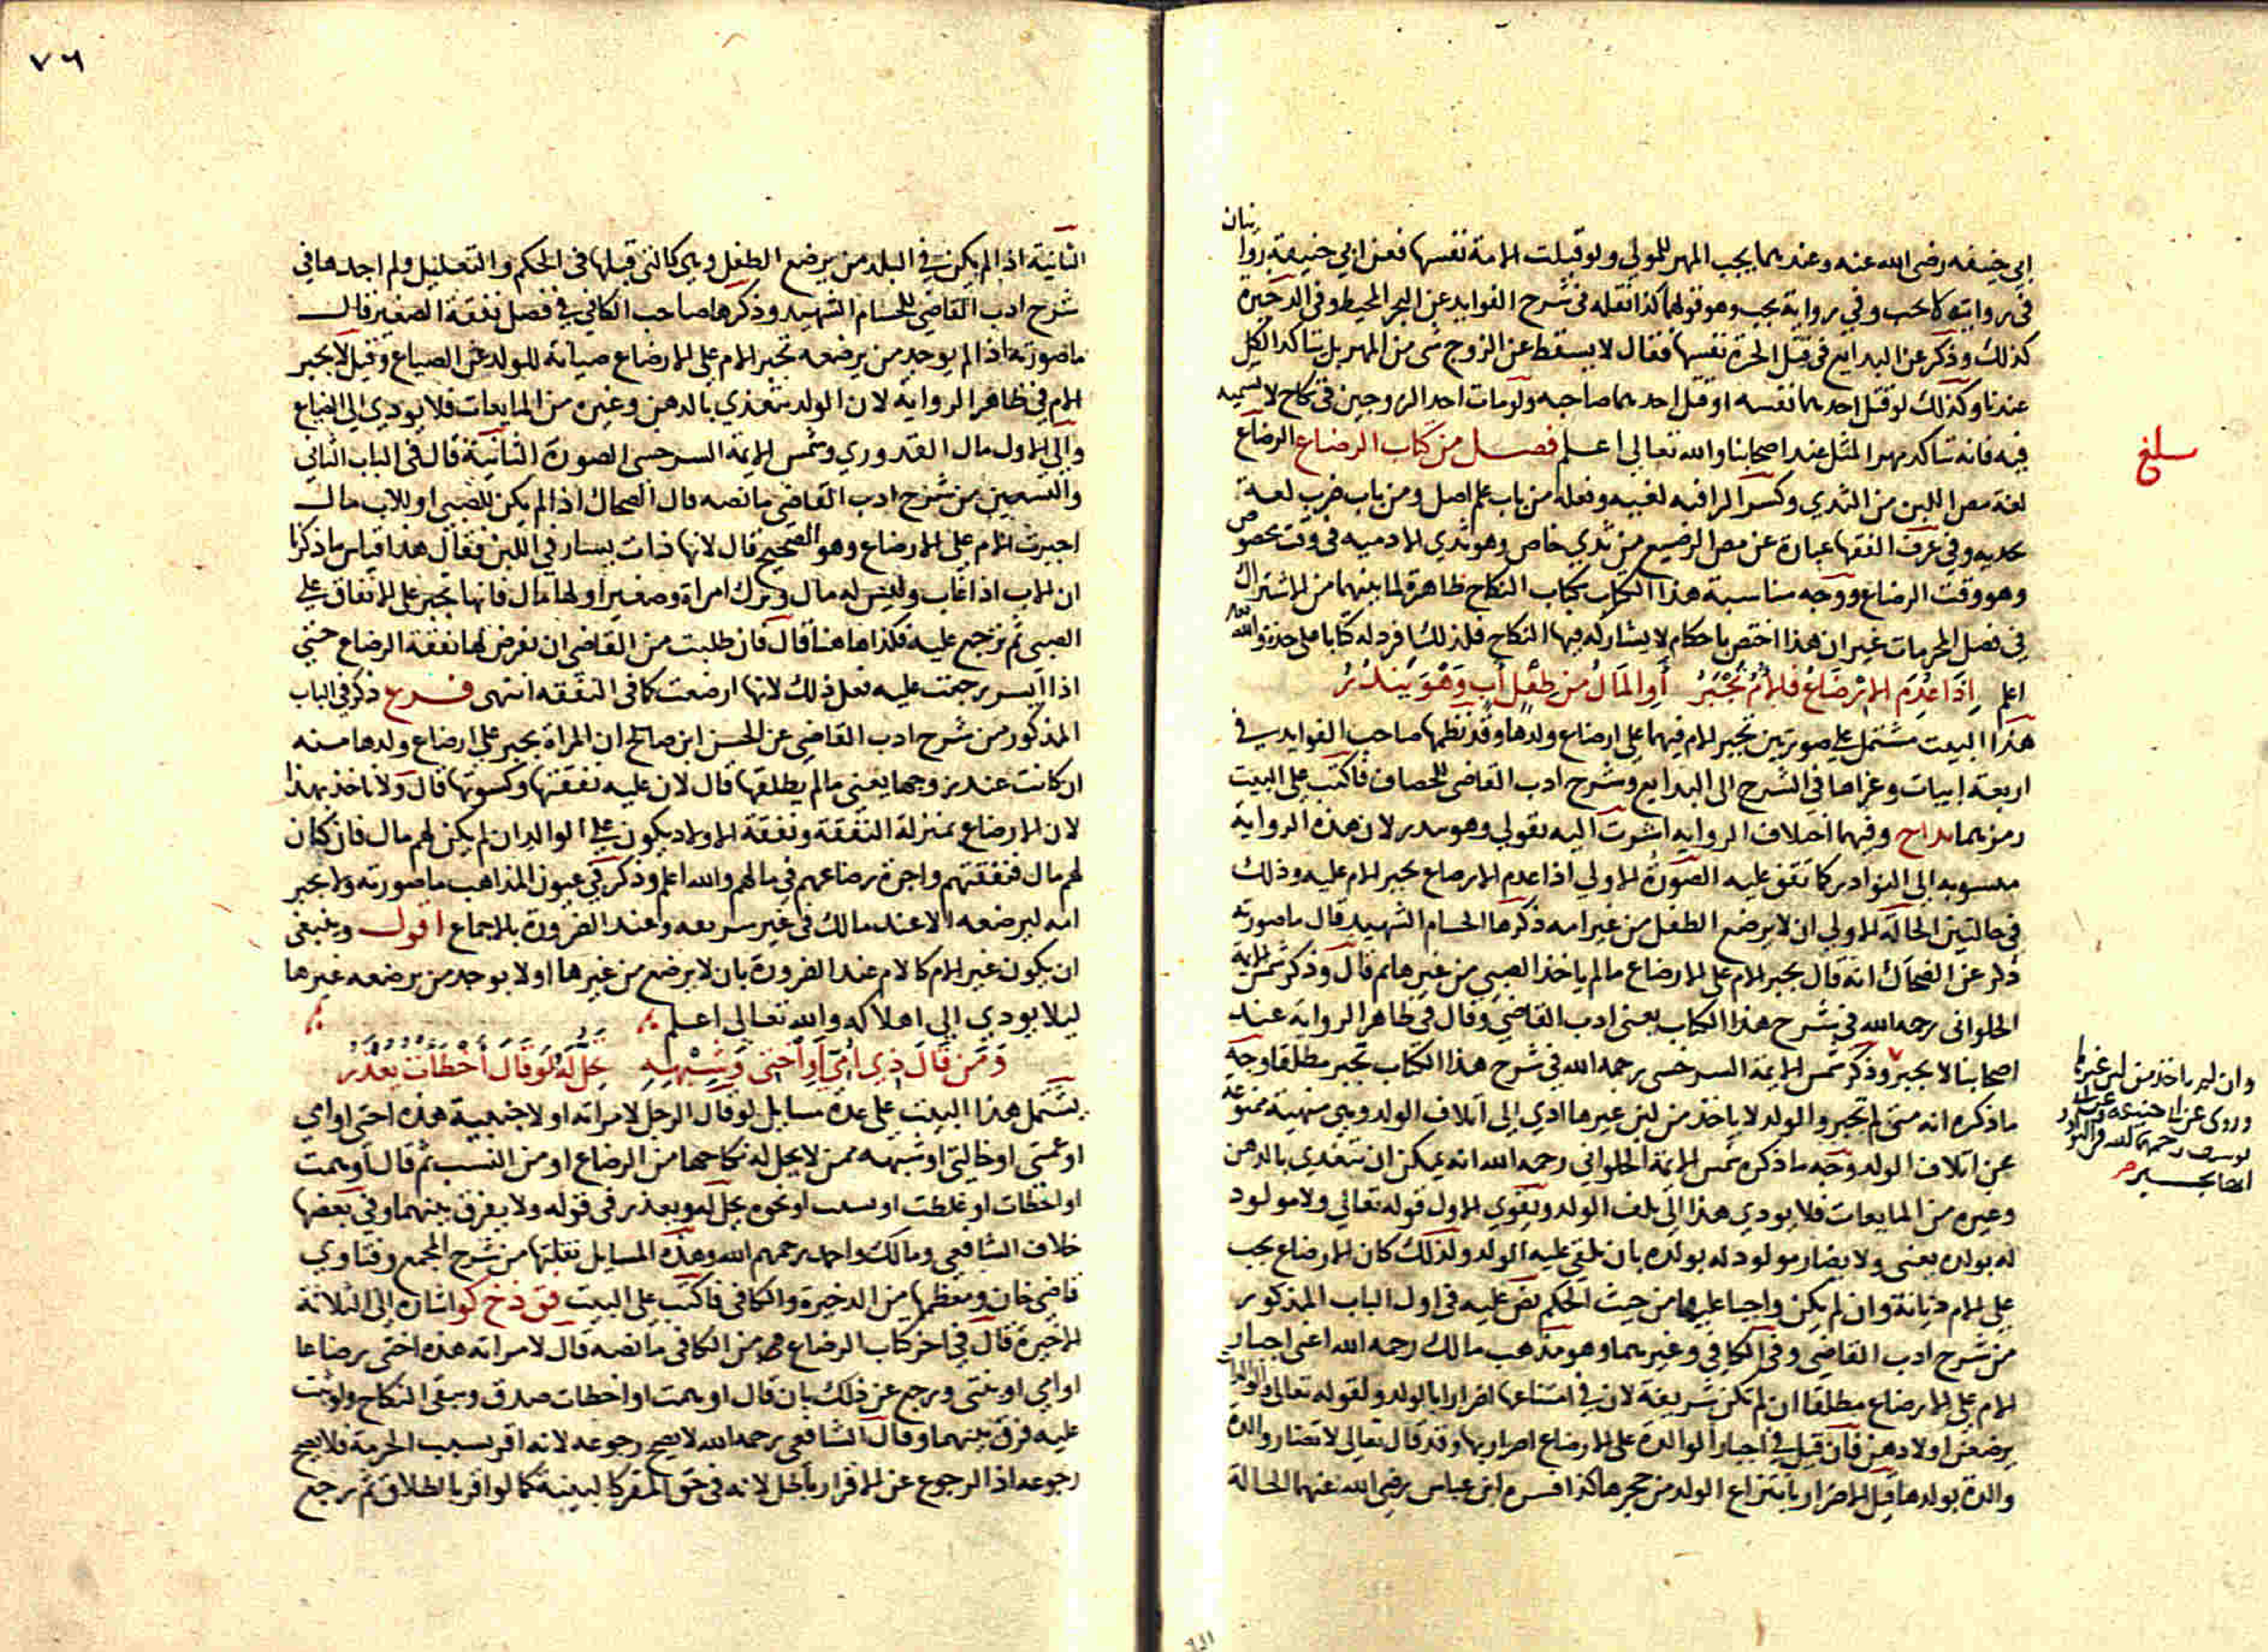 ابي حنيفه رضي الله عنه وعندهما يجب المهر للمولي ولو قتلت الامة نفسها فعن ابي حنيفة روايتان
في رواية لا يجب وفي رواية يجب وهو قولهما كذا نقله في شرح الفوايد عن البحر المحيط وفي الدخيرة
كذلك وذكر عن البدايع في قتل الحرة نفسها فقال لا يسقط عن الزوج شى من المهر بل يتاكد الكل
عندنا وكذلك لو قتل احدهما نفسه او قتل احدهما صاحبه ولو مات احد الزوجين في نكاح لا تسمية
فيه فانه يتاكد مهر المثل عند اصحابنا والله تعالى اعلم فصل من كتاب الرضاع الرضاع
لغة مص اللبن من الثدي وكسر الرا فيه لغيه وفعله من باب علم اصل ومن باب ضرب لغة
نجديه وفي عرف الفقها عبارة عن مص الرضيع من ثدي خاص وهو ثدي الادميه في وقت مخصوص
وهو وقت الرضاع ووجه مناسبة هذا الكتاب بكتاب النكاح ظاهرة لما بينهما من الاشتراك
في فصل المحرمات غير ان هذا اختص باحكام لا يشاركه فيها النكاح فلذلك افرد له كتابا على حدة والله
اعلم اذا عدم الارضاع فالام تجبر او المال من طفل اب وهو يندر
هذا البيت مشتمل على صورتين تجبر الام فيهما على ارضاع ولدها وقد نظمها صاحب الفوايد في
اربعة ابيات وعزاها في الشرح الى البدايع وشرح ادب القاضي للخصاف فاكتب على البيت
رمزهما بداح وفيهما اختلاف الرواية اشرت اليه بقولي وهو يندر لان هذه الرواية
منسوبه الى النوادر كما تقف عليه الصورة الاولي اذا عدم الارضاع تجبر الام عليه وذلك
في حالتين الحالة الاولي ان لا يرضع الطفل من غير امه ذكرها الحسام الشهيد قال ما صورته
ذكر عن الضحاك انه قال تجبر الام على الارضاع ما لم ياخذ الصبي من غيرها ثم قال وذكر شمس الايمة
الحلواني رحمه الله في شرح هذا الكتاب يعني ادب القاضي وقال في ظاهر الرواية عند
اصحابنا لا تجبر وذكر شمس الايمة السرخسي رحمه الله في شرح هذا الكتاب تجبر مطلقا وجه
ما ذكره انه متى لم تجبر والولد لا ياخذ من لبن غيرها ادي الى اتلاف الولد وهي منهية ممنوعة
عن اتلاف الولد وجه ما ذكره شمس الايمة الحلواني رحمه الله انه يمكن ان يتغذي بالدهن
وغيره من المايعات فلا يودي هذا الى تلف الولد ويقوي الاول قوله تعالى ولا مولود
له بولده يعني ولا يضار مولود له بولده بان يلقي عليه الولد ولذلك كان الارضاع يجب
على الام ديانة وان لم يكن واجبا عليها من حيث الحكم نص عليه في اول الباب المذكور
من شرح ادب القاضي وفي الكافي وغيرهما وهو مذهب مالك رحمه الله اعني اجبار
الام على الارضاع مطلقا ان لم تكن شريفة لان في امتناعها اضرارا بالولد ولقوله تعالى والوالدات
يرضعن اولادهن فان قيل في اجبار الوالدة على الارضاع اضرار بها وقد قال تعالى لا تضار والدة
والدة بولدها قيل الاضرار بانتزاع الولد من حجرها كذا فسره ابن عباس رضي الله عنهما الحالة
وان لم ياخذ من لبن غيرها
وروى عن ابي حنيفة
يوسف رحمهما الله في النوادر
انها تجبر
٧٦
الثانية اذا لم يكن في البلد من يرضع الطفل وهي كالتي قبلها في الحكم والتعليل ولم اجدها في
شرح ادب القاضي للحسام الشهيد وذكرها صاحب الكافي في فصل نفقة الصغير قال
ما صورته اذا لم يوجد من يرضعه تجبر الام على الارضاع صيانة للولد عن الضياع وقيل لا تجبر
الام في ظاهر الرواية لان الولد يتغذي بالدهن وغيره من المايعات فلا يودي الى الضياع
والى الاول مال القدوري وشمس الايمة السرخسي الصورة الثانية قال في الباب الثاني
والتسعين من شرح ادب القاضي ما نصه قال الضحاك اذا لم يكن للصبي او للاب مال
اجبرت الام على الارضاع وهو الصحيح قال لانها ذات يسار في اللبن فقال هذا قياس ما ذكرنا
ان الاب اذا غاب وليس له مال وترك امراة وصغيرا ولها مال فانها تجبر على الانفاق على
الصبي ثم ترجع عليه فكذا هاهنا قال فان طلبت من القاضي ان يفرض لها نفقة الرضاع حتى
اذا ايسر رجعت عليه فعل ذلك لانها ارضعت كما في النفقه انتهى فرع ذكر في الباب
المذكور من شرح ادب القاضي عن الحسن ابن صالح ان المراة تجبر على ارضاع ولدها منه
ان كانت عند زوجها يعني ما لم يطلقها قال لان عليه نفقتها وكسوتها قال ولا ناخذ بهذا
لان الارضاع بمنزلة النفقة ونفقة الاولاد يكون على الوالد ان لم يكن لهم مال فان كان
لهم مال فنفقتهم واجرة رضاعهم في مالهم والله اعلم وذكر في عيون المذاهب ما صورته ولا تجبر
امه لترضعه الا عند مالك في غير شريفه وعند الضرورة بالاجماع اقول وينبغي
ان يكون غير الام كالام عند الضرورة بان لا يرضع من غيرها او لا يوجد من يرضعه غيرها
ليلا يودي الى اهلاكه والله تعالى اعلم
ومن قال ذي امي او اختي وشبهه تحل له لو قال اخطات يعذر
يشتمل هذا البيت على عدة مسايل لو قال الرجل لامراته او لاجنبية هذه اختي او امي
او عمتي او خالتي او شبهه ممن لا يحل له نكاحها من الرضاع او من النسب ثم قال اوهمت
او اخطات او غلطت او نسيت او نحوه تحل له ويعذر في قوله ولا يفرق بينهما وفي بعضها
خلاف الشافعي ومالك واحمد رحمهم الله وهذه المسايل نقلتها من شرح المجمع وفتاوي
قاضي خان ومعظمها من الدخيرة والكافي فاكتب على البيت فق ذخ كو اشارة الى الثلاثة
الاخيرة قال في اخر كتاب الرضاع من الكافي ما نصه قال لامراته هذه اختي رضاعا
او امي او بنتي ورجع عن ذلك بان قال اوهمت او اخطات صدق وبقى النكاح ولو ثبت
عليه فرق بينهما وقال الشافعي رحمه الله لا يصح رجوعه لانه اقر بسبب الحرمة فلا يصح
رجوعه اذ الرجوع عن الاقرار باطل لانه في حق المقر كالبينة كما لو اقر بالطلاق ثم رجع